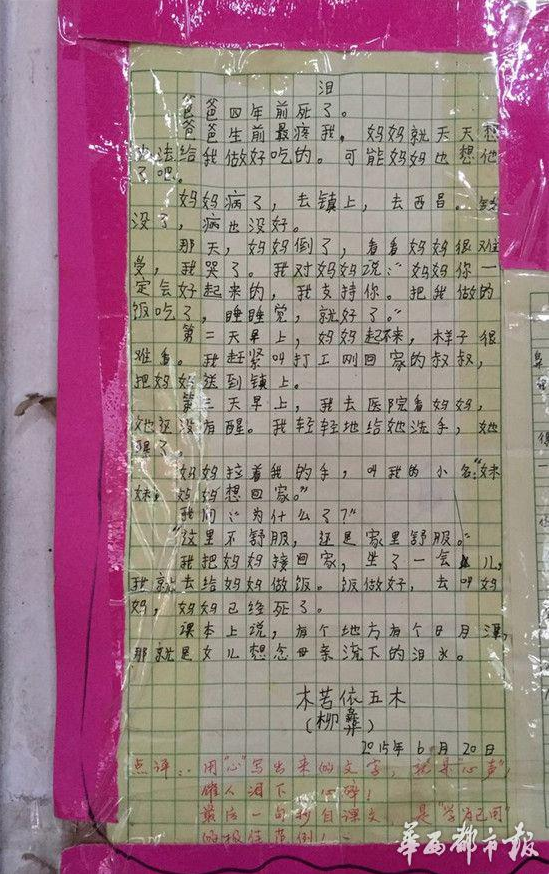 泪
爸爸四年前死了。
爸爸生前最疼我，妈妈就天天想
办法给我做好吃的。可能妈妈也想他
了吧。
妈妈病了，去镇上，去西昌。钱
没了，病也没好。
那天，妈妈倒了，看看妈妈很难
受，我哭了。我对妈妈说：“妈妈你一
定会好起来的，我支持你。把我做的
饭吃了，睡睡觉，就好了。”
第二天早上，妈妈起不来，样子很
难看。我赶紧叫打工刚回家的叔叔，
把妈妈送到镇上。
第三天早上，我去医院看妈妈，
她还没有醒。我轻轻地给她洗手，她
醒了。
妈妈拉着我的手，叫我的小名：“妹
妹，妈妈想回家。”
我问：“为什么了？”
“这里不舒服，还是家里舒服。”
我把妈妈接回家，坐了一会儿，
我就去给妈妈做饭。饭做好，去叫妈
妈，妈妈已经死了。
课本上说，有个地方有个日月潭，
那就是女儿想念母亲流下的泪水。
木苦依五木
（柳彝）
2015年6月20日
点评：用“心”写出来的文字，就是心声，
催人泪下，心碎！
最后一句抄自课文，是“学为己用”
的极佳范例！
华西都市报